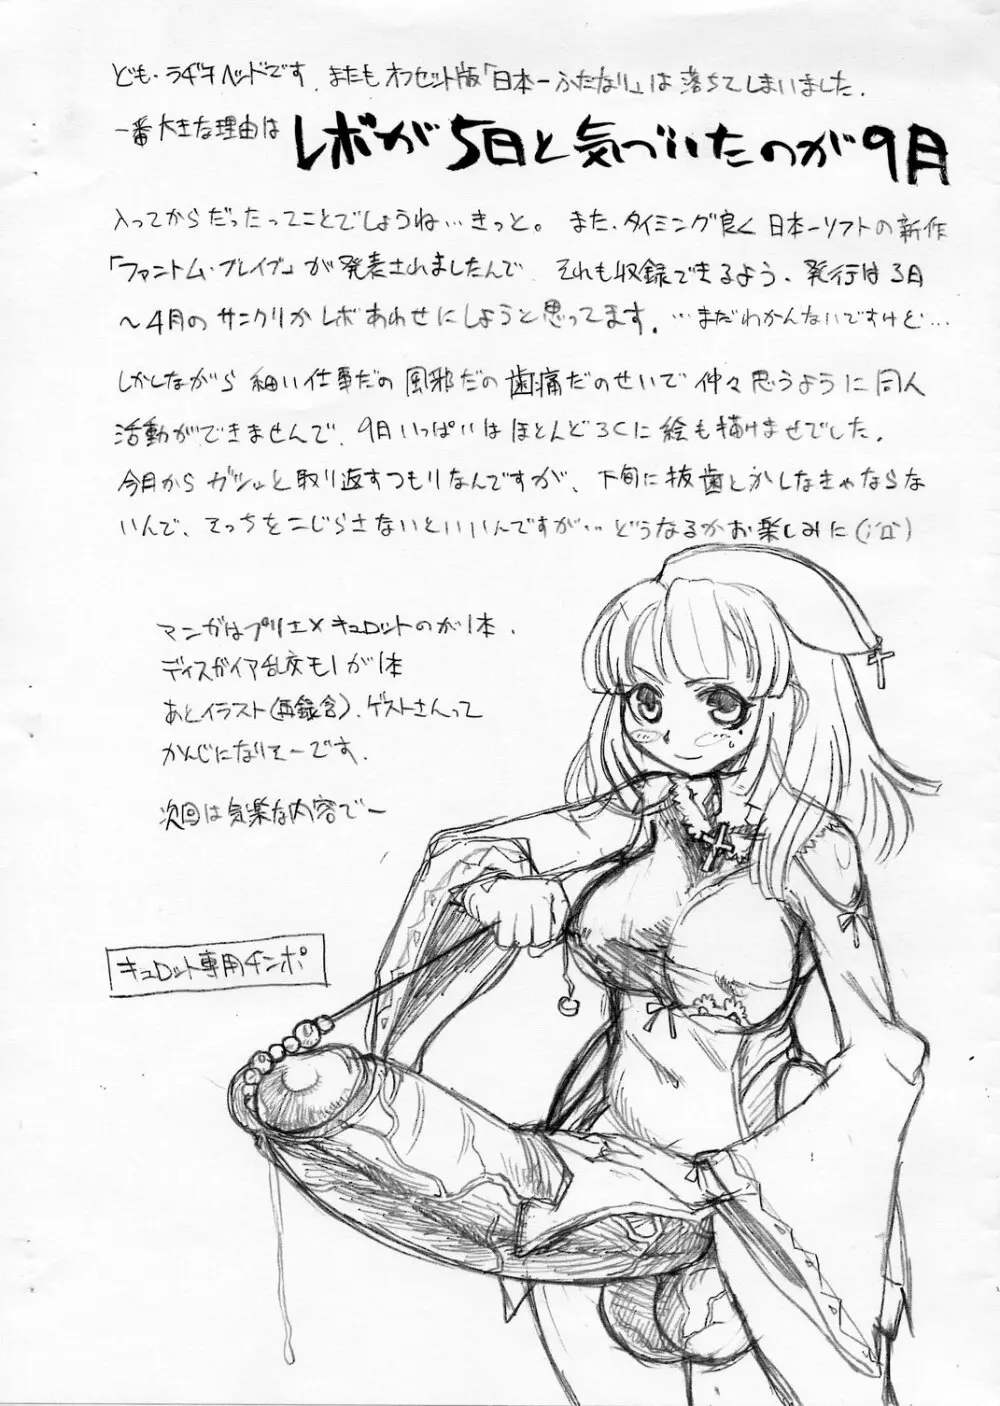 ども、ラヂヲヘッドです。またもオフセット版「日本一ふたなり」は落ちてしまいました。
一番大きな理由は レボが5日と気づいたのが9月
入ってからだったってことでしょうね…きっと。また、タイミング良く日本一ソフトの新作
「ファントム・ブレイブ」が発表されましたんで、それも収録できるよう、発行は3月
～4月のサンクリかレボあわせにしようと思ってます。…まだわかんないですけど…
しかしながら 細い仕事だの風邪だの歯痛だのせいで仲々思うように同人
活動ができませんで、9月いっぱいはほとんどろくに絵も描けませでした。
今月からガシッと取り返すつもりなんですが、下旬に抜歯とかしなきゃならな
いんで、そっちをこじらさないといいんですが… どうなるかお楽しみに(;´Д`)
マンガはプリエ×キュロットのが1本、
ディスガイア乱交モノが1本
あとイラスト(再録含)、ゲストさんって
かんじになりそーです。
次回は気楽な内容でー
キュロット専用チンポ